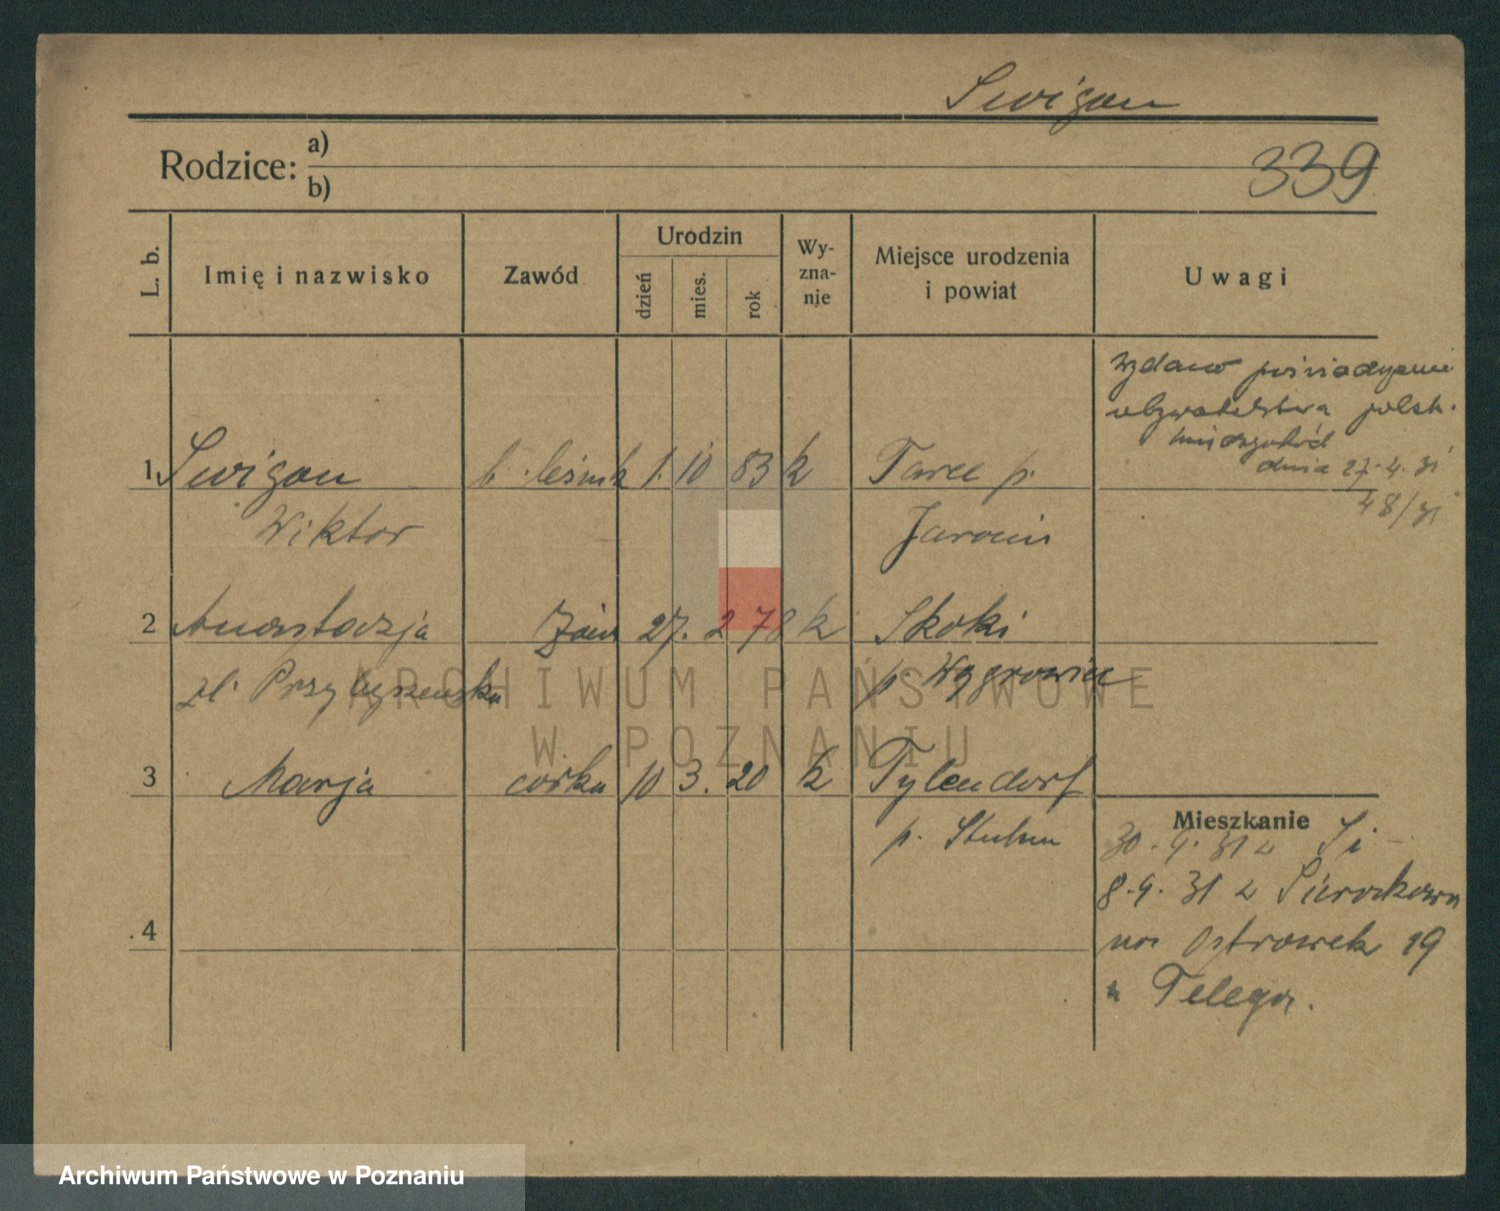 Swigon
Rodzice: a)
b)
339
L. b.
Imię i nazwisko
Zawód
Urodzin
dzień
mies.
rok
Wy-
zna-
nie
Miejsce urodzenia
i powiat
Uwagi
wydano poświadczenie
obywatelstwa polsk.
Międzychód
dnia 27.4.31
48/31
1 Swigon b. leśnik 1. 10 83 k Tarce p.
Wiktor Jarocin
2 Anastazja żona 27. 2 78 k Skoki
zd. Przybyszewska p. Wągrowiec
3 Marja córka 10 3. 20 k Tylendorf
p. Stuhm
Mieszkanie
30.9.31 z
8.9.31 z Sierakowa
na Ostrowek 19
u Telega.
4
ARCHIWUM PAŃSTWOWE
W POZNANIU
Archiwum Państwowe w Poznaniu